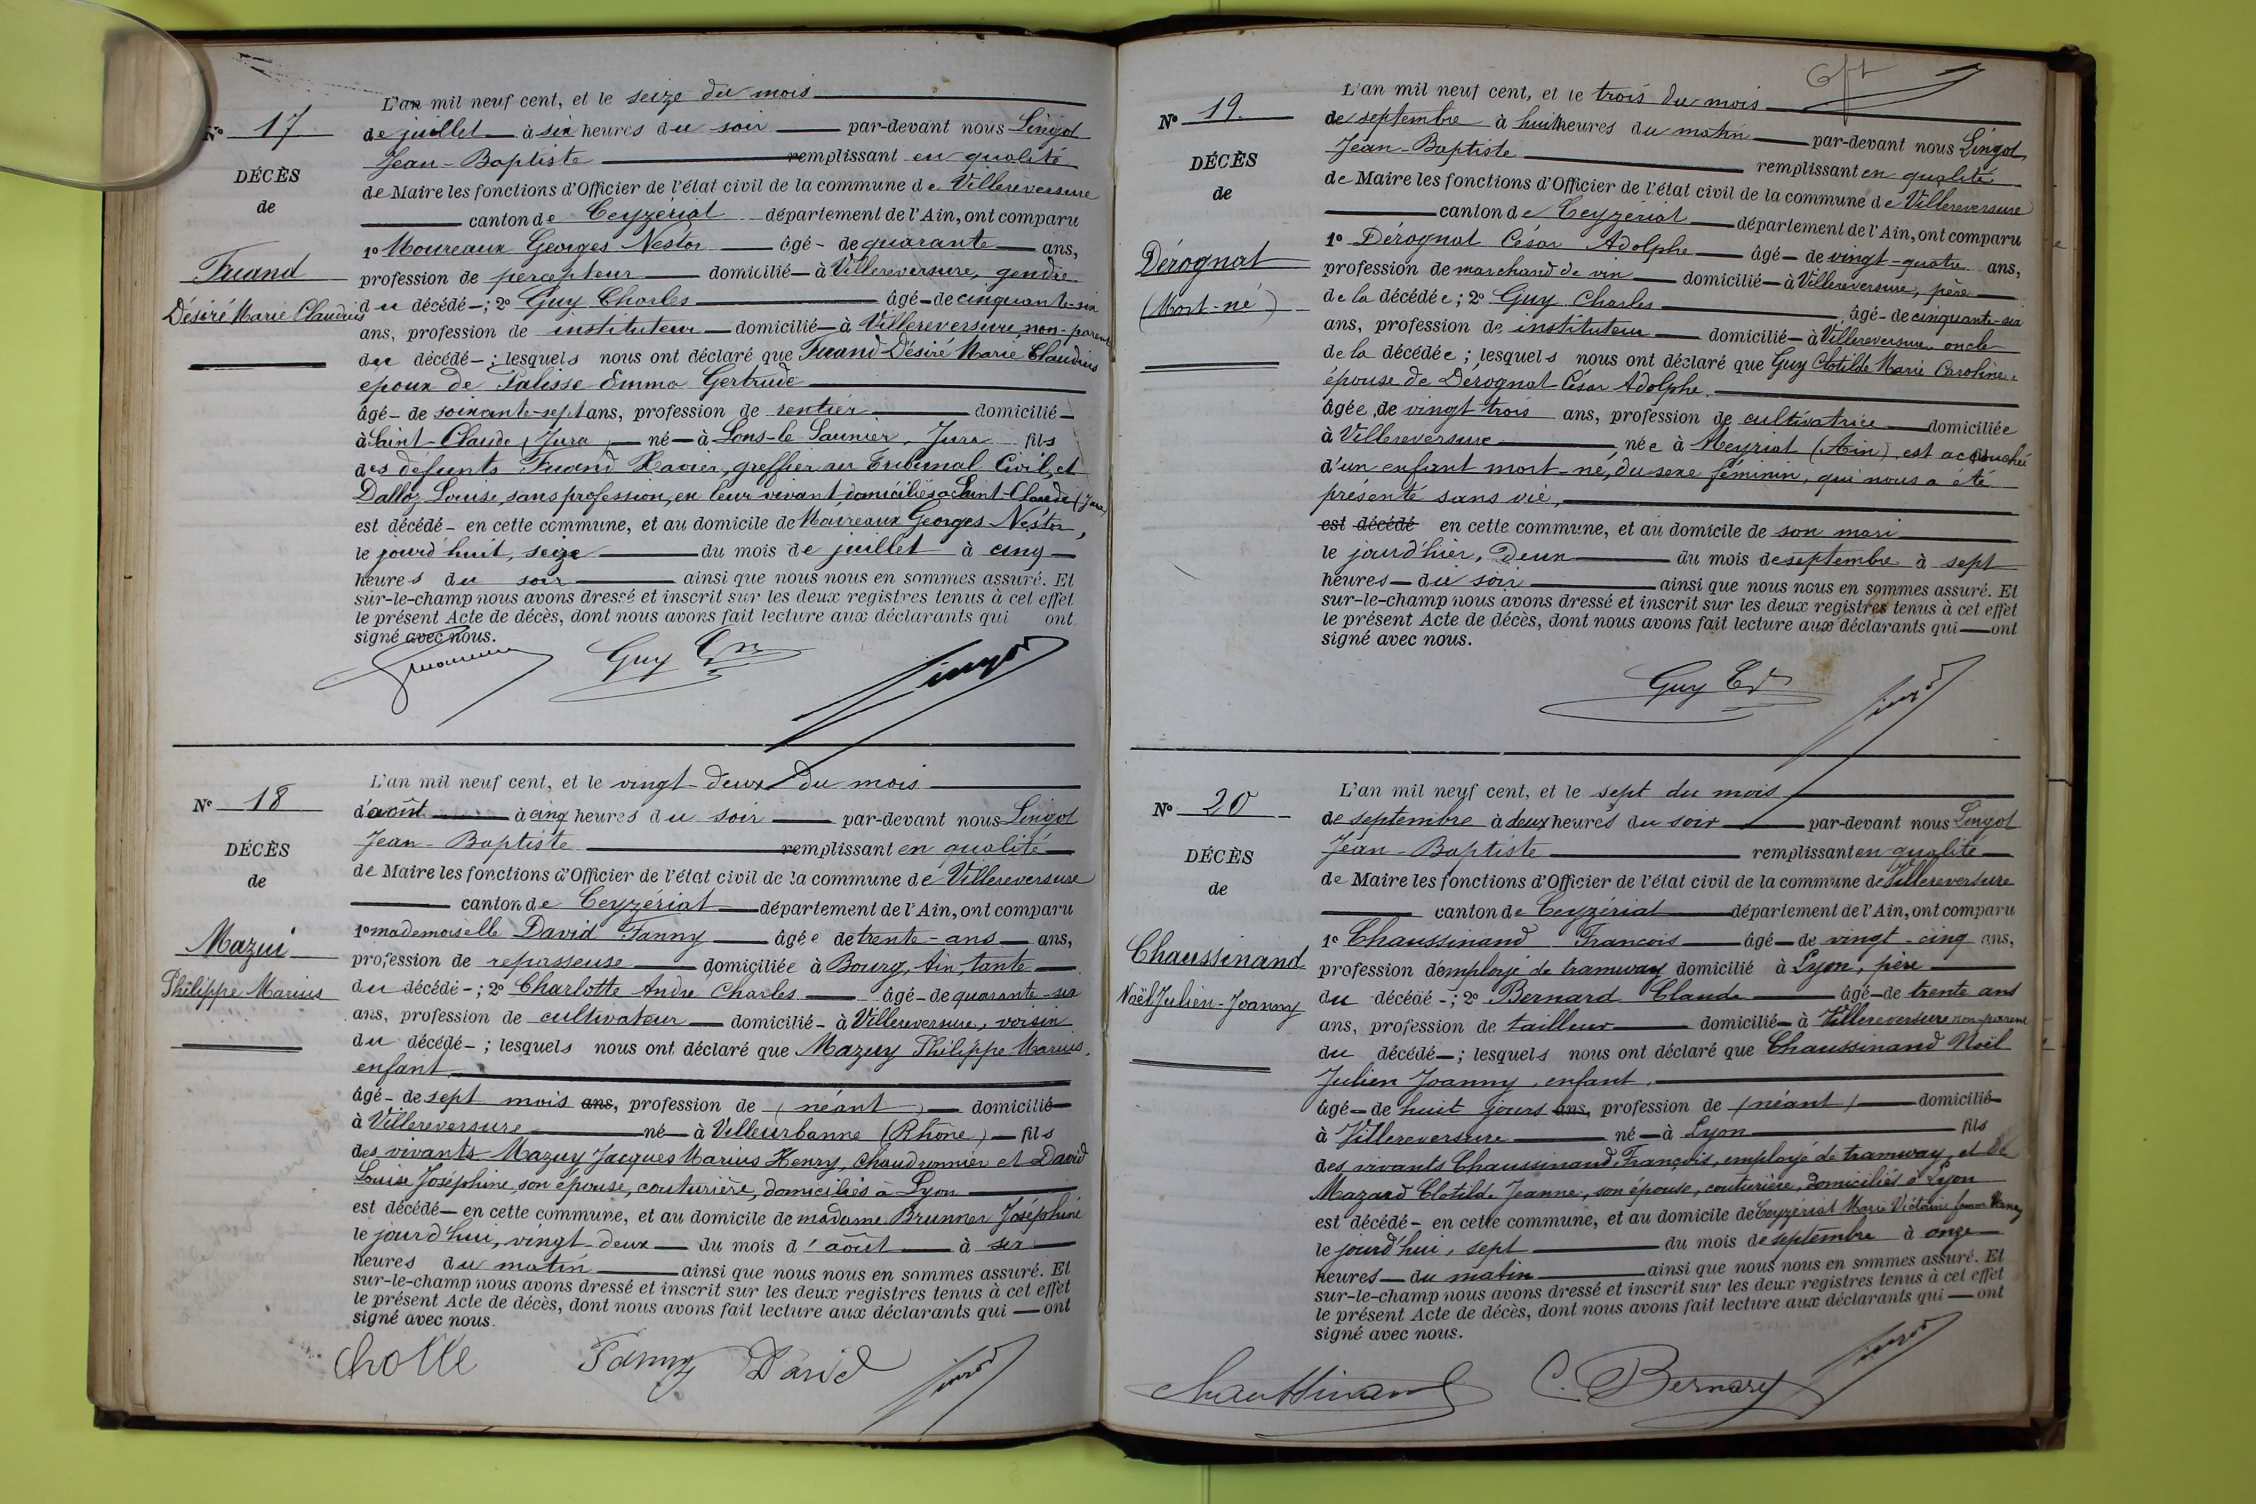 L'an mil neuf cent, et le seize du mois
N° 17
de juillet à six heures du soir par-devant nous Lingot
Jean-Baptiste remplissant en qualité
DÉCÈS
de Maire les fonctions d'Officier de l'état civil de la commune de Villereversure
de
canton de Ceyzériat département de l'Ain, ont comparu
1° Moureaux Georges Nestor âgé de quarante ans,
Fuand
profession de percepteur domicilié à Villereversure, gendre
Désiré Marie Claudius
du décédé ; 2° Guy Charles âgé de cinquante-six
ans, profession de instituteur domicilié à Villereversure non-parent
du décédé ; lesquels nous ont déclaré que Fuand Désiré Marie Claudius
époux de Palisse Emma Gertrude
âgé de soixante-sept ans, profession de rentier domicilié
à Saint-Claude, Jura, né à Lons-le Saunier, Jura fils
des défunts Fuand Xavier, greffier au Tribunal Civil, et
Dalloz Louise, sans profession, en leur vivant domiciliés à Saint-Claude (Jura)
est décédé en cette commune, et au domicile de Moureaux Georges Nestor,
le jourd'hui, seize du mois de juillet à cinq
heures du soir ainsi que nous nous en sommes assuré. Et
sur-le-champ nous avons dressé et inscrit sur les deux registres tenus à cet effet
le présent Acte de décès, dont nous avons fait lecture aux déclarants qui ont
signé avec nous.
Guy Lingot
L'an mil neuf cent, et le vingt-deux du mois
N° 18
d'août à cinq heures du soir par-devant nous Lingot
Jean-Baptiste remplissant en qualité
DÉCÈS
de Maire les fonctions d'Officier de l'état civil de la commune de Villereversure
de
canton de Ceyzériat département de l'Ain, ont comparu
1° mademoiselle David Fanny âgée de trente-ans ans,
Mazui
profession de repasseuse domiciliée à Bourg, Ain, tante
Philippe Marius
du décédé ; 2° Charlotte André Charles âgé de quarante-six
ans, profession de cultivateur domicilié à Villereversure, voisin
du décédé ; lesquels nous ont déclaré que Mazuy Philippe Marius,
enfant
âgé de sept mois ans, profession de (néant) domicilié
à Villereversure né à Villeurbanne (Rhône) fils
des vivants Mazuy Jacques Marius Henry, chaudronnier et David
Louise Joséphine, son épouse, couturière, domiciliés à Lyon
est décédé en cette commune, et au domicile de madame Brunner Joséphine
le jourd'hui, vingt-deux du mois d'août à six
heures du matin ainsi que nous nous en sommes assuré. Et
sur-le-champ nous avons dressé et inscrit sur les deux registres tenus à cet effet
le présent Acte de décès, dont nous avons fait lecture aux déclarants qui ont
signé avec nous.
Fanny David Lingot
L'an mil neuf cent, et le trois du mois
N° 19
de septembre à huit heures du matin par-devant nous Lingot
Jean-Baptiste remplissant en qualité
DÉCÈS
de Maire les fonctions d'Officier de l'état civil de la commune de Villereversure
de
canton de Ceyzériat département de l'Ain, ont comparu
1° Dérognat César Adolphe âgé de vingt-quatre ans,
Dérognat
profession de marchand de vin domicilié à Villereversure, père
(Mort-né)
de la décédée ; 2° Guy Charles âgé de cinquante-six
ans, profession de instituteur domicilié à Villereversure oncle
de la décédée ; lesquels nous ont déclaré que Guy Clotilde Marie Caroline,
épouse de Dérognat César Adolphe,
âgée de vingt trois ans, profession de cultivatrice domiciliée
à Villereversure née à Meyriat (Ain), est accouchée
d'un enfant mort-né, du sexe féminin, qui nous a été
présenté sans vie,
est décédé en cette commune, et au domicile de son mari
le jourd'hier, Deux du mois de septembre à sept
heures du soir ainsi que nous nous en sommes assuré. Et
sur-le-champ nous avons dressé et inscrit sur les deux registres tenus à cet effet
le présent Acte de décès, dont nous avons fait lecture aux déclarants qui ont
signé avec nous.
Guy Lingot
L'an mil neuf cent, et le sept du mois
N° 20
de septembre à deux heures du soir par-devant nous Lingot
Jean-Baptiste remplissant en qualité
DÉCÈS
de Maire les fonctions d'Officier de l'état civil de la commune de Villereversure
de
canton de Ceyzériat département de l'Ain, ont comparu
1° Chaussinand Francois âgé de vingt-cinq ans,
Chaussinand
profession d'employé de tramway domicilié à Lyon, père
Noël Julien-Joanny
du décédé ; 2° Bernard Claude âgé de trente ans
ans, profession de tailleur domicilié à Villereversure non parent
du décédé ; lesquels nous ont déclaré que Chaussinand Noël
Julien Joanny, enfant,
âgé de huit jours ans, profession de (néant) domicilié
à Villereversure né à Lyon fils
des vivants Chaussinand, François, employé de tramway, et de
Mazard Clotilde Jeanne, son épouse, couturière, domiciliés à Lyon
est décédé en cette commune, et au domicile de Ceyzériat Marie Victorine femme
le jourd'hui, sept du mois de septembre à onze
heures du matin ainsi que nous nous en sommes assuré. Et
sur-le-champ nous avons dressé et inscrit sur les deux registres tenus à cet effet
le présent Acte de décès, dont nous avons fait lecture aux déclarants qui ont
signé avec nous.
Chaussinand C. Bernard Lingot